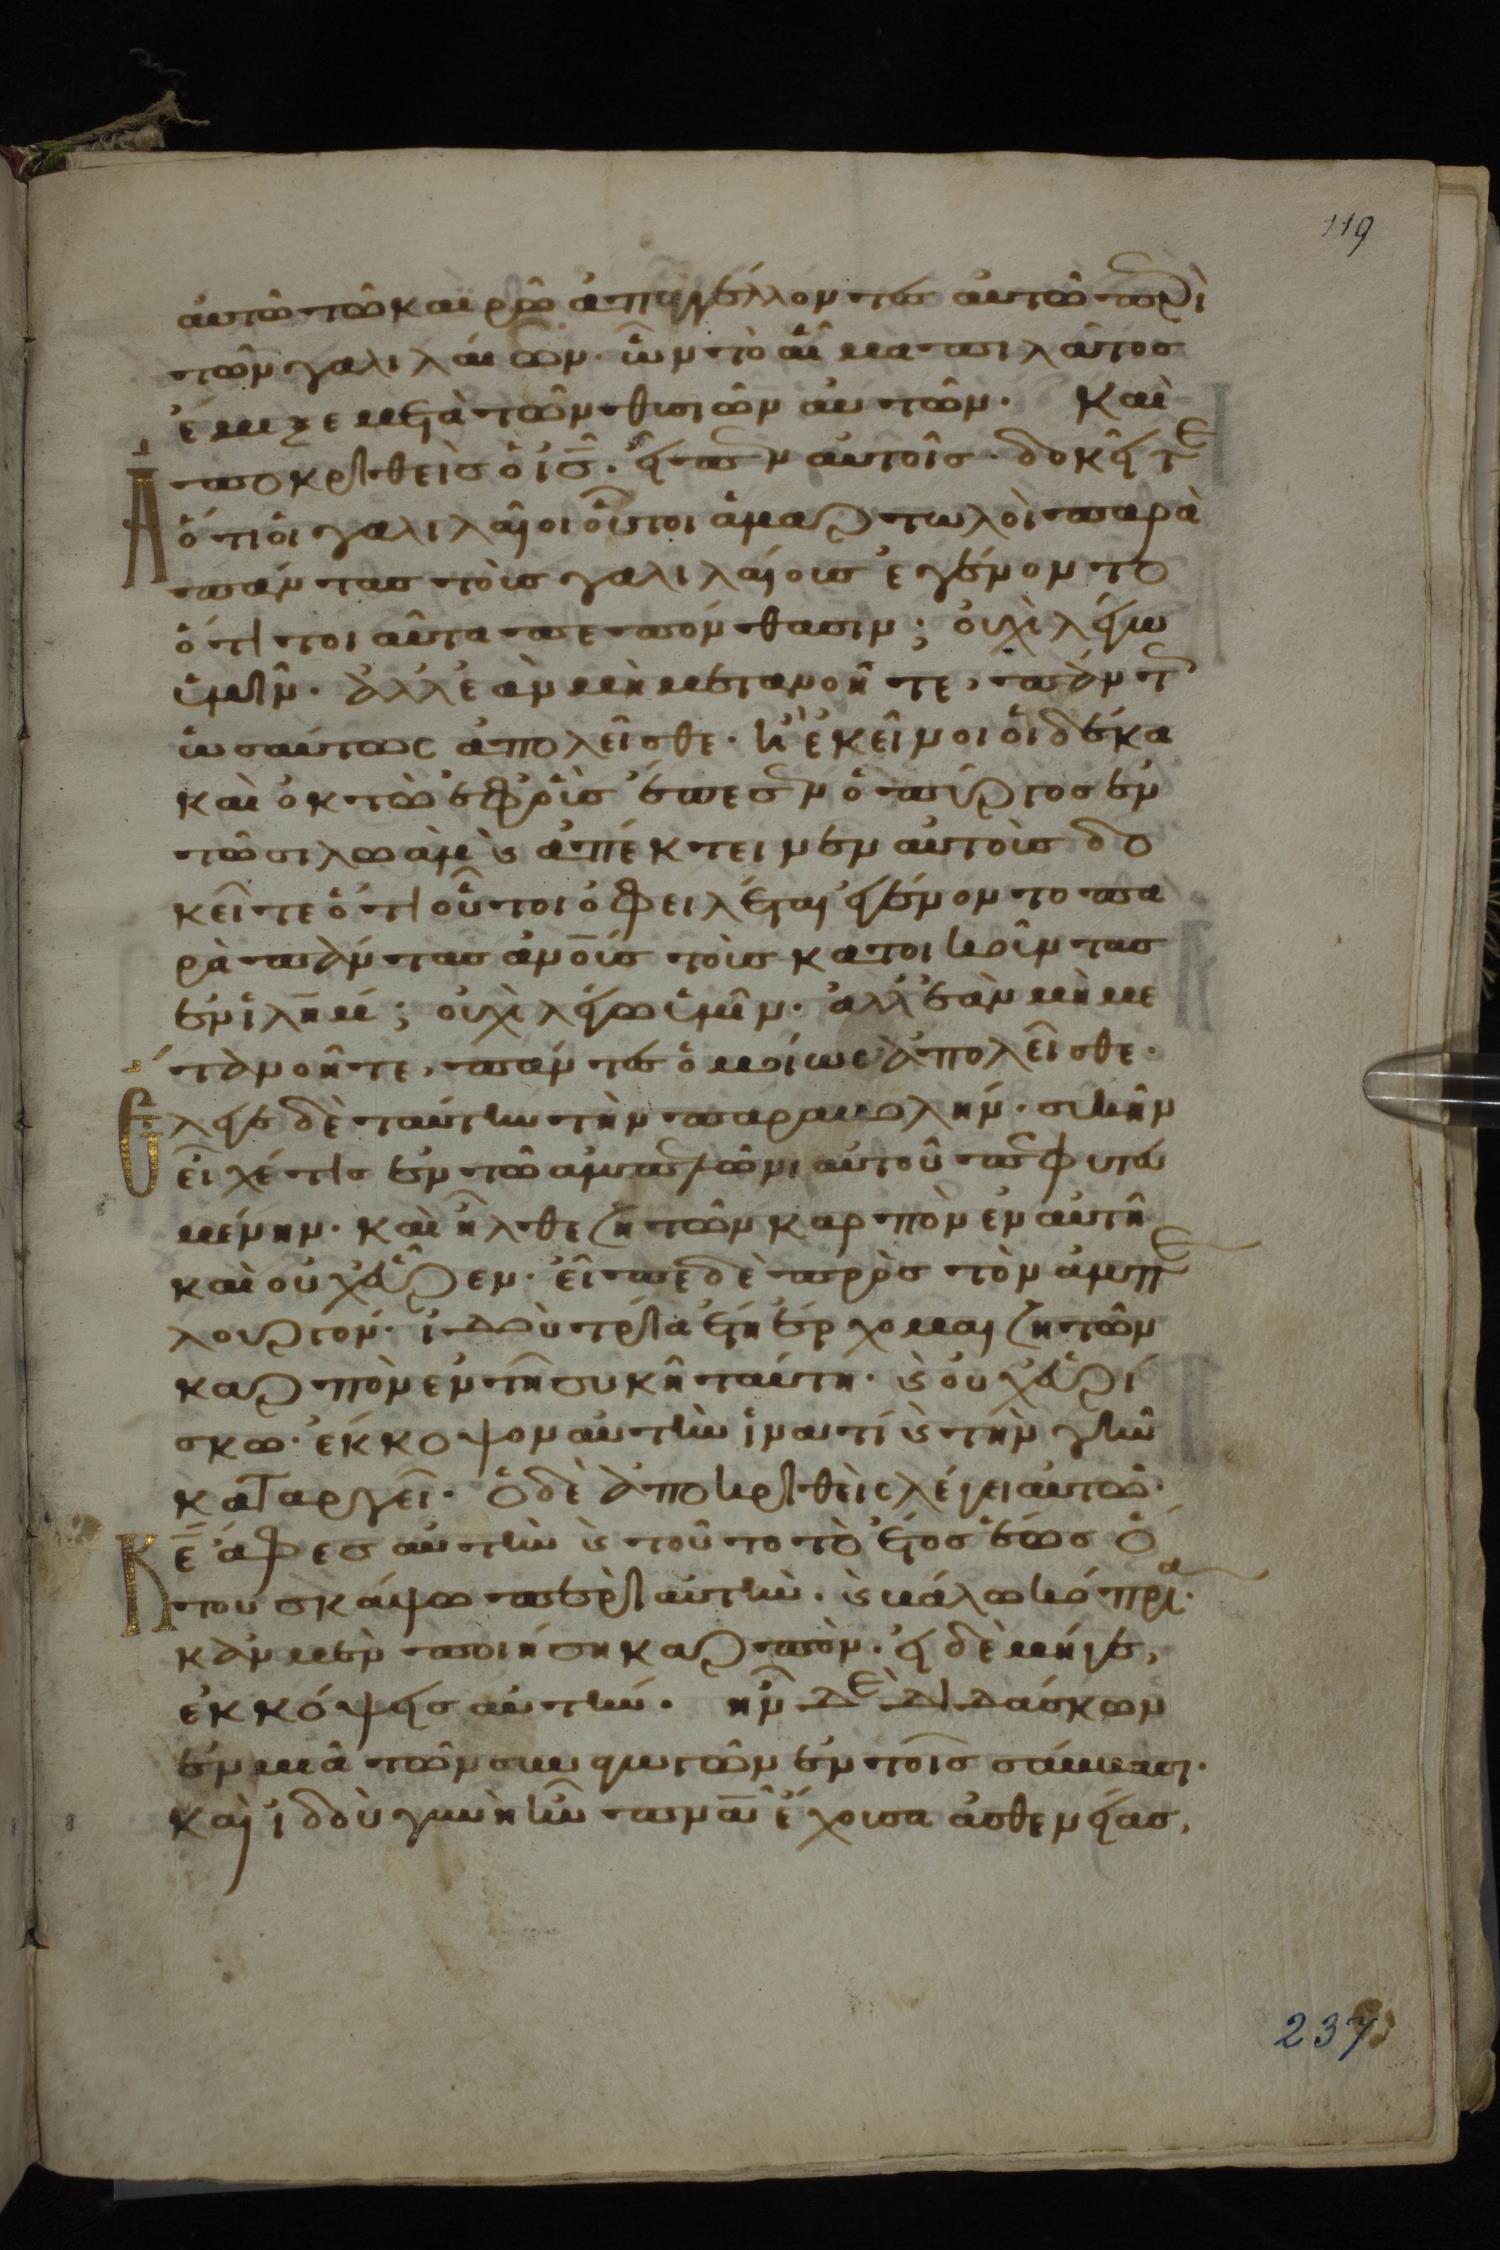 119
αὐτῶ τῶ καιρῶ ἀπαγγέλλοντες αὐτῶ περὶ
τῶν γαλιλαίων. ὧν τὸ αἷμα πιλάτος
ἔμιξε μετὰ τῶν θυσιῶν αὐτῶν. Καὶ
ἀποκριθεὶς ὁ ις. εἶπεν αὐτοῖς. δοκεῖτε
ὅτι οἱ γαλιλαῖοι οὗτοι ἁμαρτωλοὶ παρὰ
πάντας τοὺς γαλιλαίους ἐγένοντο
ὅτι τοιαῦτα πεπόνθασιν; οὐχὶ λέγω
ὑμῖν. ἀλλ' ἐὰν μὴ μετανοῆτε, πάντες
ὡσαύτως ἀπολεῖσθε. ἢ ἐκεῖνοι οἱ δέκα
καὶ ὀκτὼ ἐφ' οὓς ἔπεσεν ὁ πύργος ἐν
τῶ σιλωὰμ καὶ ἀπέκτεινεν αὐτοὺς δο
κεῖτε ὅτι οὗτοι ὀφειλέται ἐγένοντο πα
ρὰ πάντας ανους τοὺς κατοικοῦντας
ἐν ιλημ; οὐχὶ λέγω ὑμῖν. ἀλλ' ἐὰν μὴ με
τανοῆτε, πάντες ὁμοίως ἀπολεῖσθε.
Ἔλεγε δὲ ταύτην τὴν παραβολήν. συκῆν
εἶχέ τις ἐν τῶ ἀμπελῶνι αὐτοῦ πεφυτευ
μένην. καὶ ἦλθε ζητῶν καρπὸν ἐν αὐτῆ
καὶ οὐχ εὗρεν. εἶπε δὲ πρὸς τὸν ἀμπε
λουργόν. ἰδοὺ τρία ἔτη ἔρχομαι ζητῶν
καρπὸν ἐν τῆ συκῆ ταύτη. καὶ οὐχ εὑρί
σκω. ἔκκοψον αὐτὴν ἱνατί καὶ τὴν γῆν
καταργεῖ. Ὁ δὲ ἀποκριθεὶς λέγει αὐτῶ.
Κε ἄφες αὐτὴν καὶ τοῦτο τὸ ἔτος ἕως ὅ
του σκάψω περὶ αὐτὴν. καὶ βάλω κόπρια.
κἂν μὲν ποιήση καρπὸν. εἰ δὲ μήγε,
ἐκκόψεις αὐτήν. ἦν δὲ διδάσκων
ἐν μιᾶ τῶν συναγωγῶν ἐν τοῖς σάββασι.
καὶ ἰδοὺ γυνὴ ἦν πνα ἔχουσα ἀσθενείας,
237